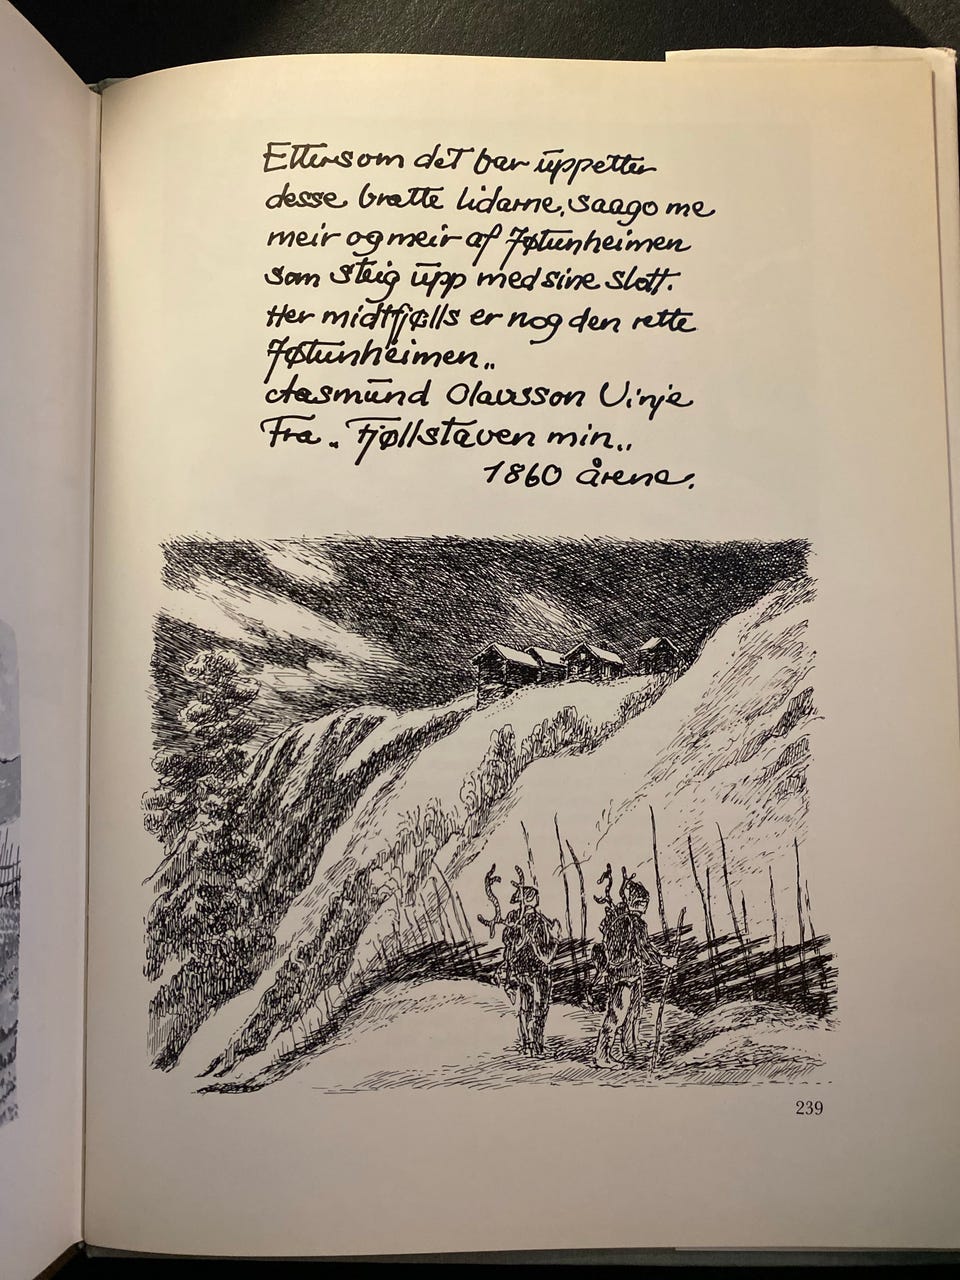 Ettersom det bar uppetter
desse bratte lidarne, saago me
meir og meir af Jøtunheimen
som steig upp med sine slott.
Her midtfjølls er nog den rette
Jøtunheimen„
Aasmund Olavsson Vinje
Fra „Fjøllstaven min„
1860 årene.
239